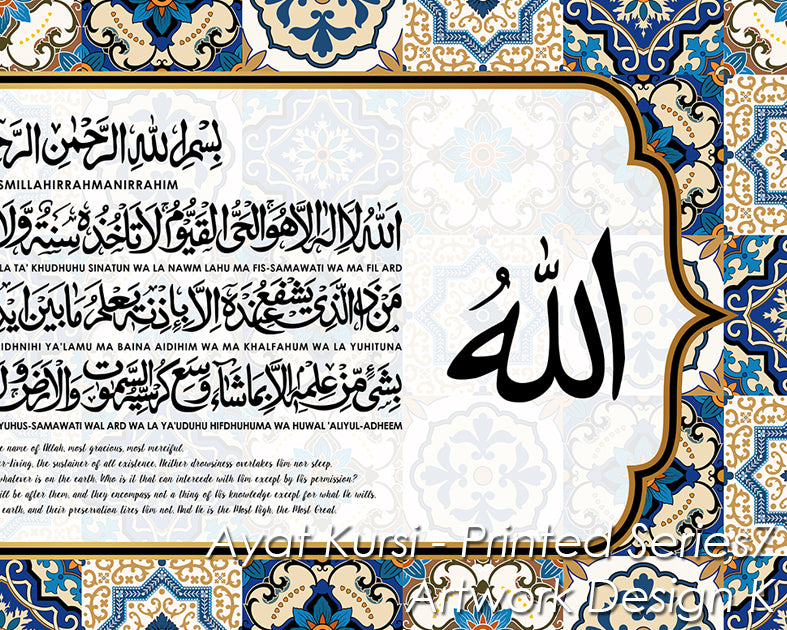 بِسْمِ اللَّهِ الرَّحْمَٰنِ
SMILLAHIRRAHMANIRRAHIM
اللَّهُ لَا إِلَٰهَ إِلَّا هُوَ الْحَيُّ الْقَيُّومُ لَا تَأْخُذُهُ سِنَةٌ وَلَا
LA TA' KHUDHUHU SINATUN WA LA NAWM LAHU MA FIS-SAMAWATI WA MA FIL ARD
مَنْ ذَا الَّذِي يَشْفَعُ عِنْدَهُ إِلَّا بِإِذْنِهِ يَعْلَمُ مَا بَيْنَ
IDHNIHI YA'LAMU MA BAINA AIDIHIM WA MA KHALFAHUM WA LA YUHITUNA
بِشَيْءٍ مِّنْ عِلْمِهِ إِلَّا بِمَا شَاءَ وَسِعَ كُرْسِيُّهُ السَّمَاوَاتِ وَالْأَرْضَ
YUHUS-SAMAWATI WAL ARD WA LA YA'UDUHU HIFDHUHUMA WA HUWAL 'ALIYUL-ADHEEM
e name of Allah, most gracious, most merciful.
er-living, the sustainer of all existence. Neither drowsiness overtakes Him nor sleep.
whatever is on the earth. Who is it that can intercede with Him except by His permission?
ill be after them, and they encompass not a thing of His knowledge except for what He wills.
earth, and their preservation tires Him not. And He is the Most High, the Most Great.
الله
Ayat Kursi - Printed Series7
Artwork Design K